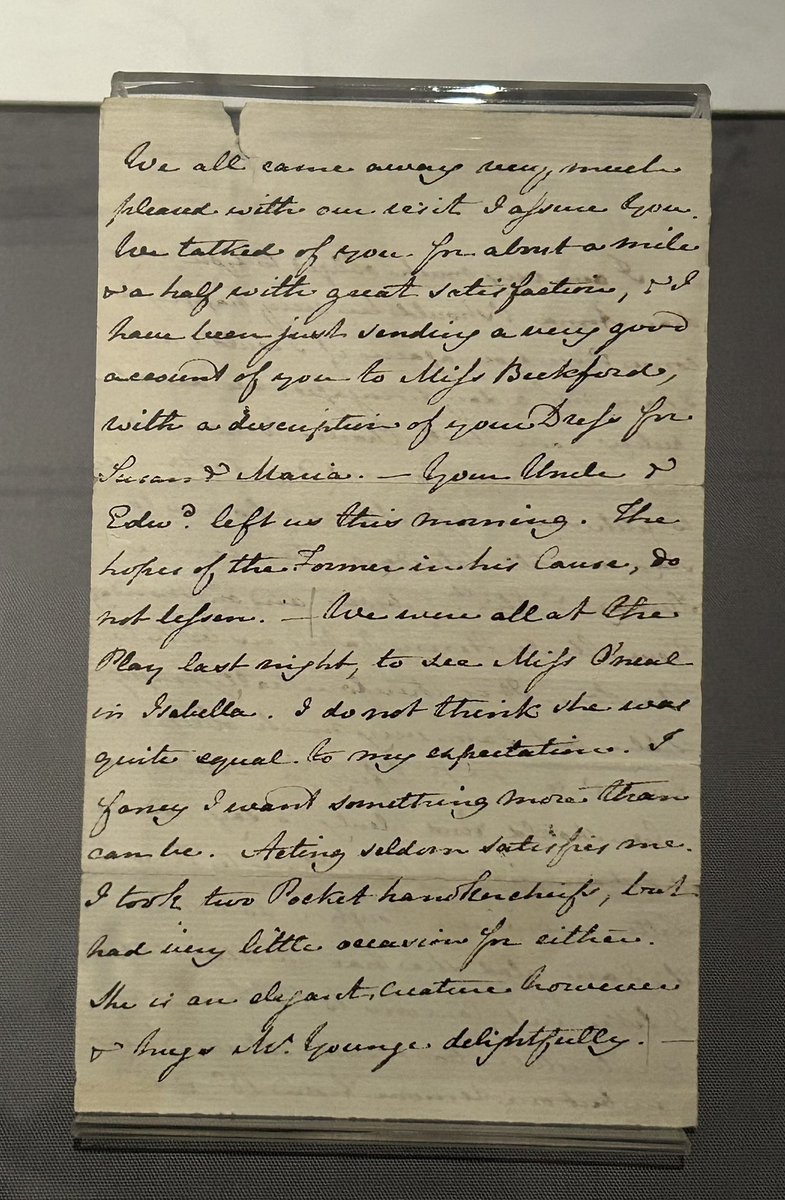 We all came away very much
pleased with our visit I assure You.
We talked of you for about a mile
& a half with great satisfaction, & I
have been just sending a very good
account of you to Miss Beckford,
with a description of your Dress for
Susan & Maria. — Your Uncle &
Edwd. left us this morning. The
hopes of the Former in his Cause, do
not lessen. — We were all at the
Play last night, to see Miss O'neal
in Isabella. I do not think she was
quite equal to my expectation. I
fancy I want something more than
can be. Acting seldom satisfies me.
I took two Pocket handkercheifs, but
had very little occasion for either.
She is an elegant creature however
& hugs Mr. Younge delightfully. —